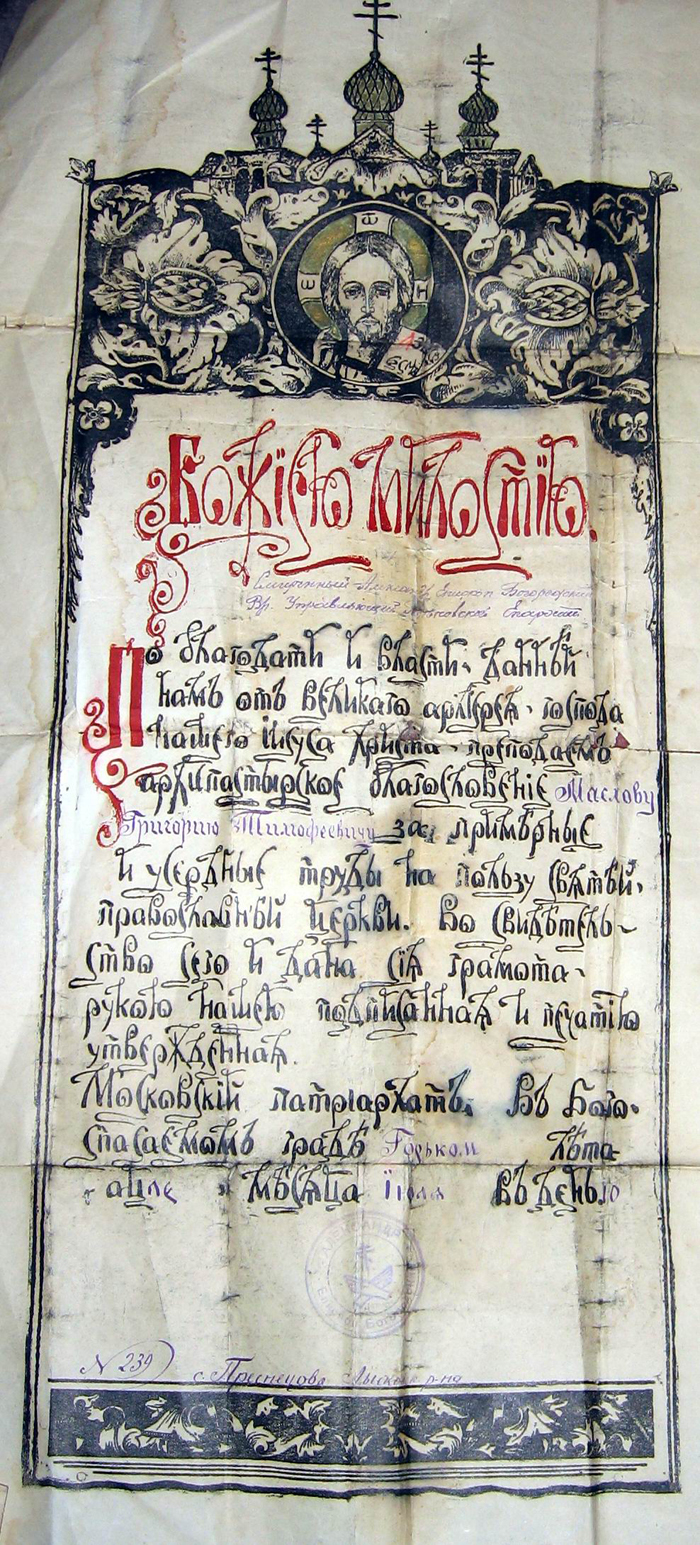 ѡ
Н
Божїею милостїю.
Смиренный Епископ Богородский
Вр. Управляющий Епархией
По благодати и власти, данной
намъ отъ великаго архїерея, господа
нашего Iисуса Христа, преподаемъ
архипастырское благословенїе Маслову
Григорию Тимофеевичу за примѣрные
и усердные труды на пользу святой,
православной церкви. Во свидѣтель-
ство сего и дана сїя грамота,
рукою нашею подписанная и печатїю
утвержденная.
Московскїй патрїархатъ. Въ Бого-
спасаемомъ градѣ Горьком лѣта
мѣсяца Iюля въ день 10
АЛЕКСАНДР
N 239
с.